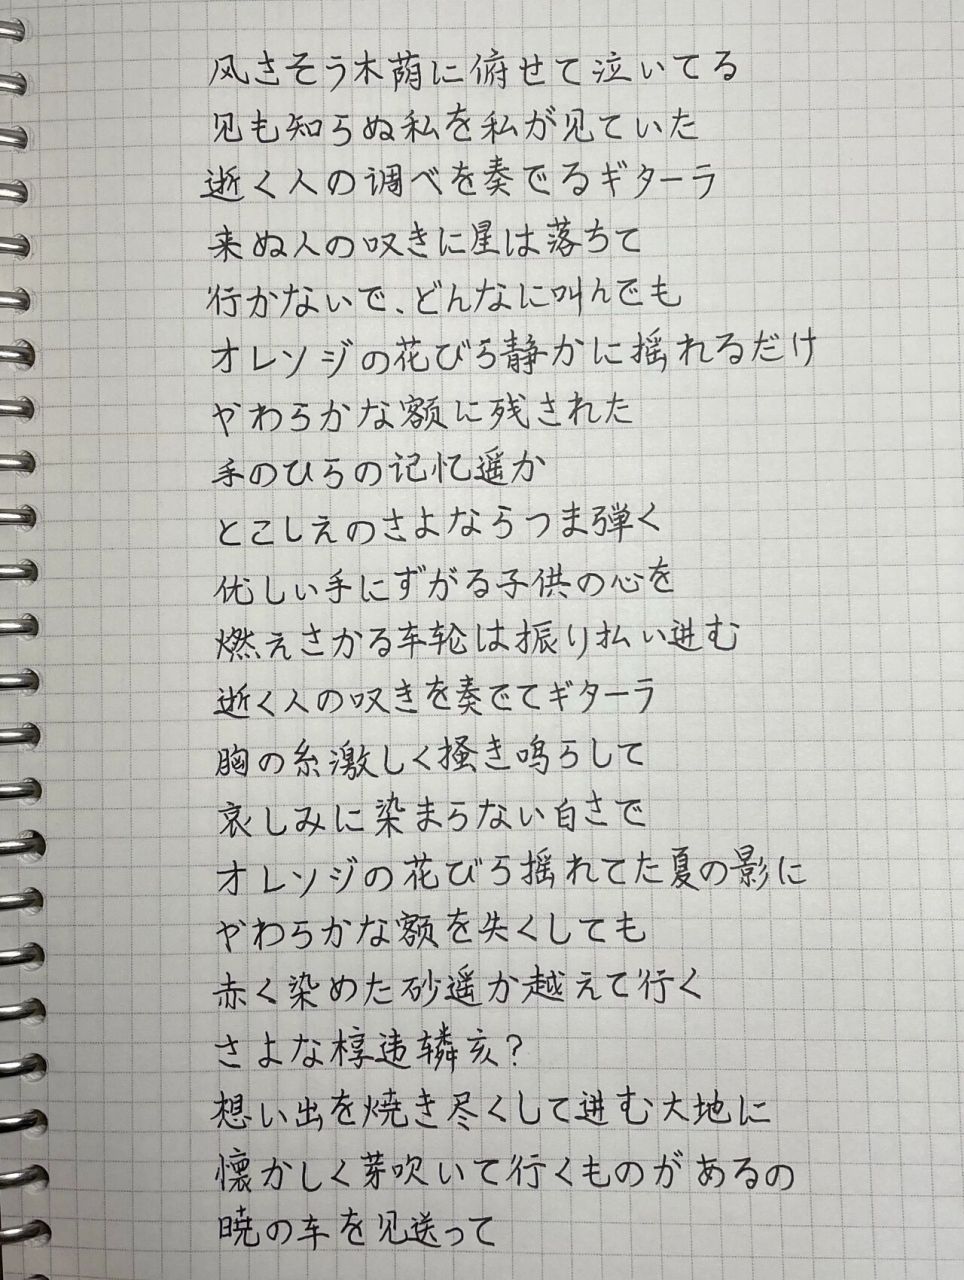 风さそう木荫に俯せて泣いてる
见も知らぬ私を私が见ていた
逝く人の调べを奏でるギターラ
来ぬ人の叹きに星は落ちて
行かないで、どんなに叫んでも
オレンジの花びら静かに揺れるだけ
やわらかな额に残された
手のひらの记忆遥か
とこしえのさよならつま弾く
优しい手にずがる子供の心を
燃えさかる车轮は振り払い进む
逝く人の叹きを奏でてギターラ
胸の糸激しく掻き鸣らして
哀しみに染まらない白さで
オレンジの花びら揺れてた夏の影に
やわらかな额を失くしても
赤く染めた砂遥か越えて行く
さよな椁违辚亥?
想い出を焼き尽くして进む大地に
懐かしく芽吹いて行くものがあるの
暁の车を见送って